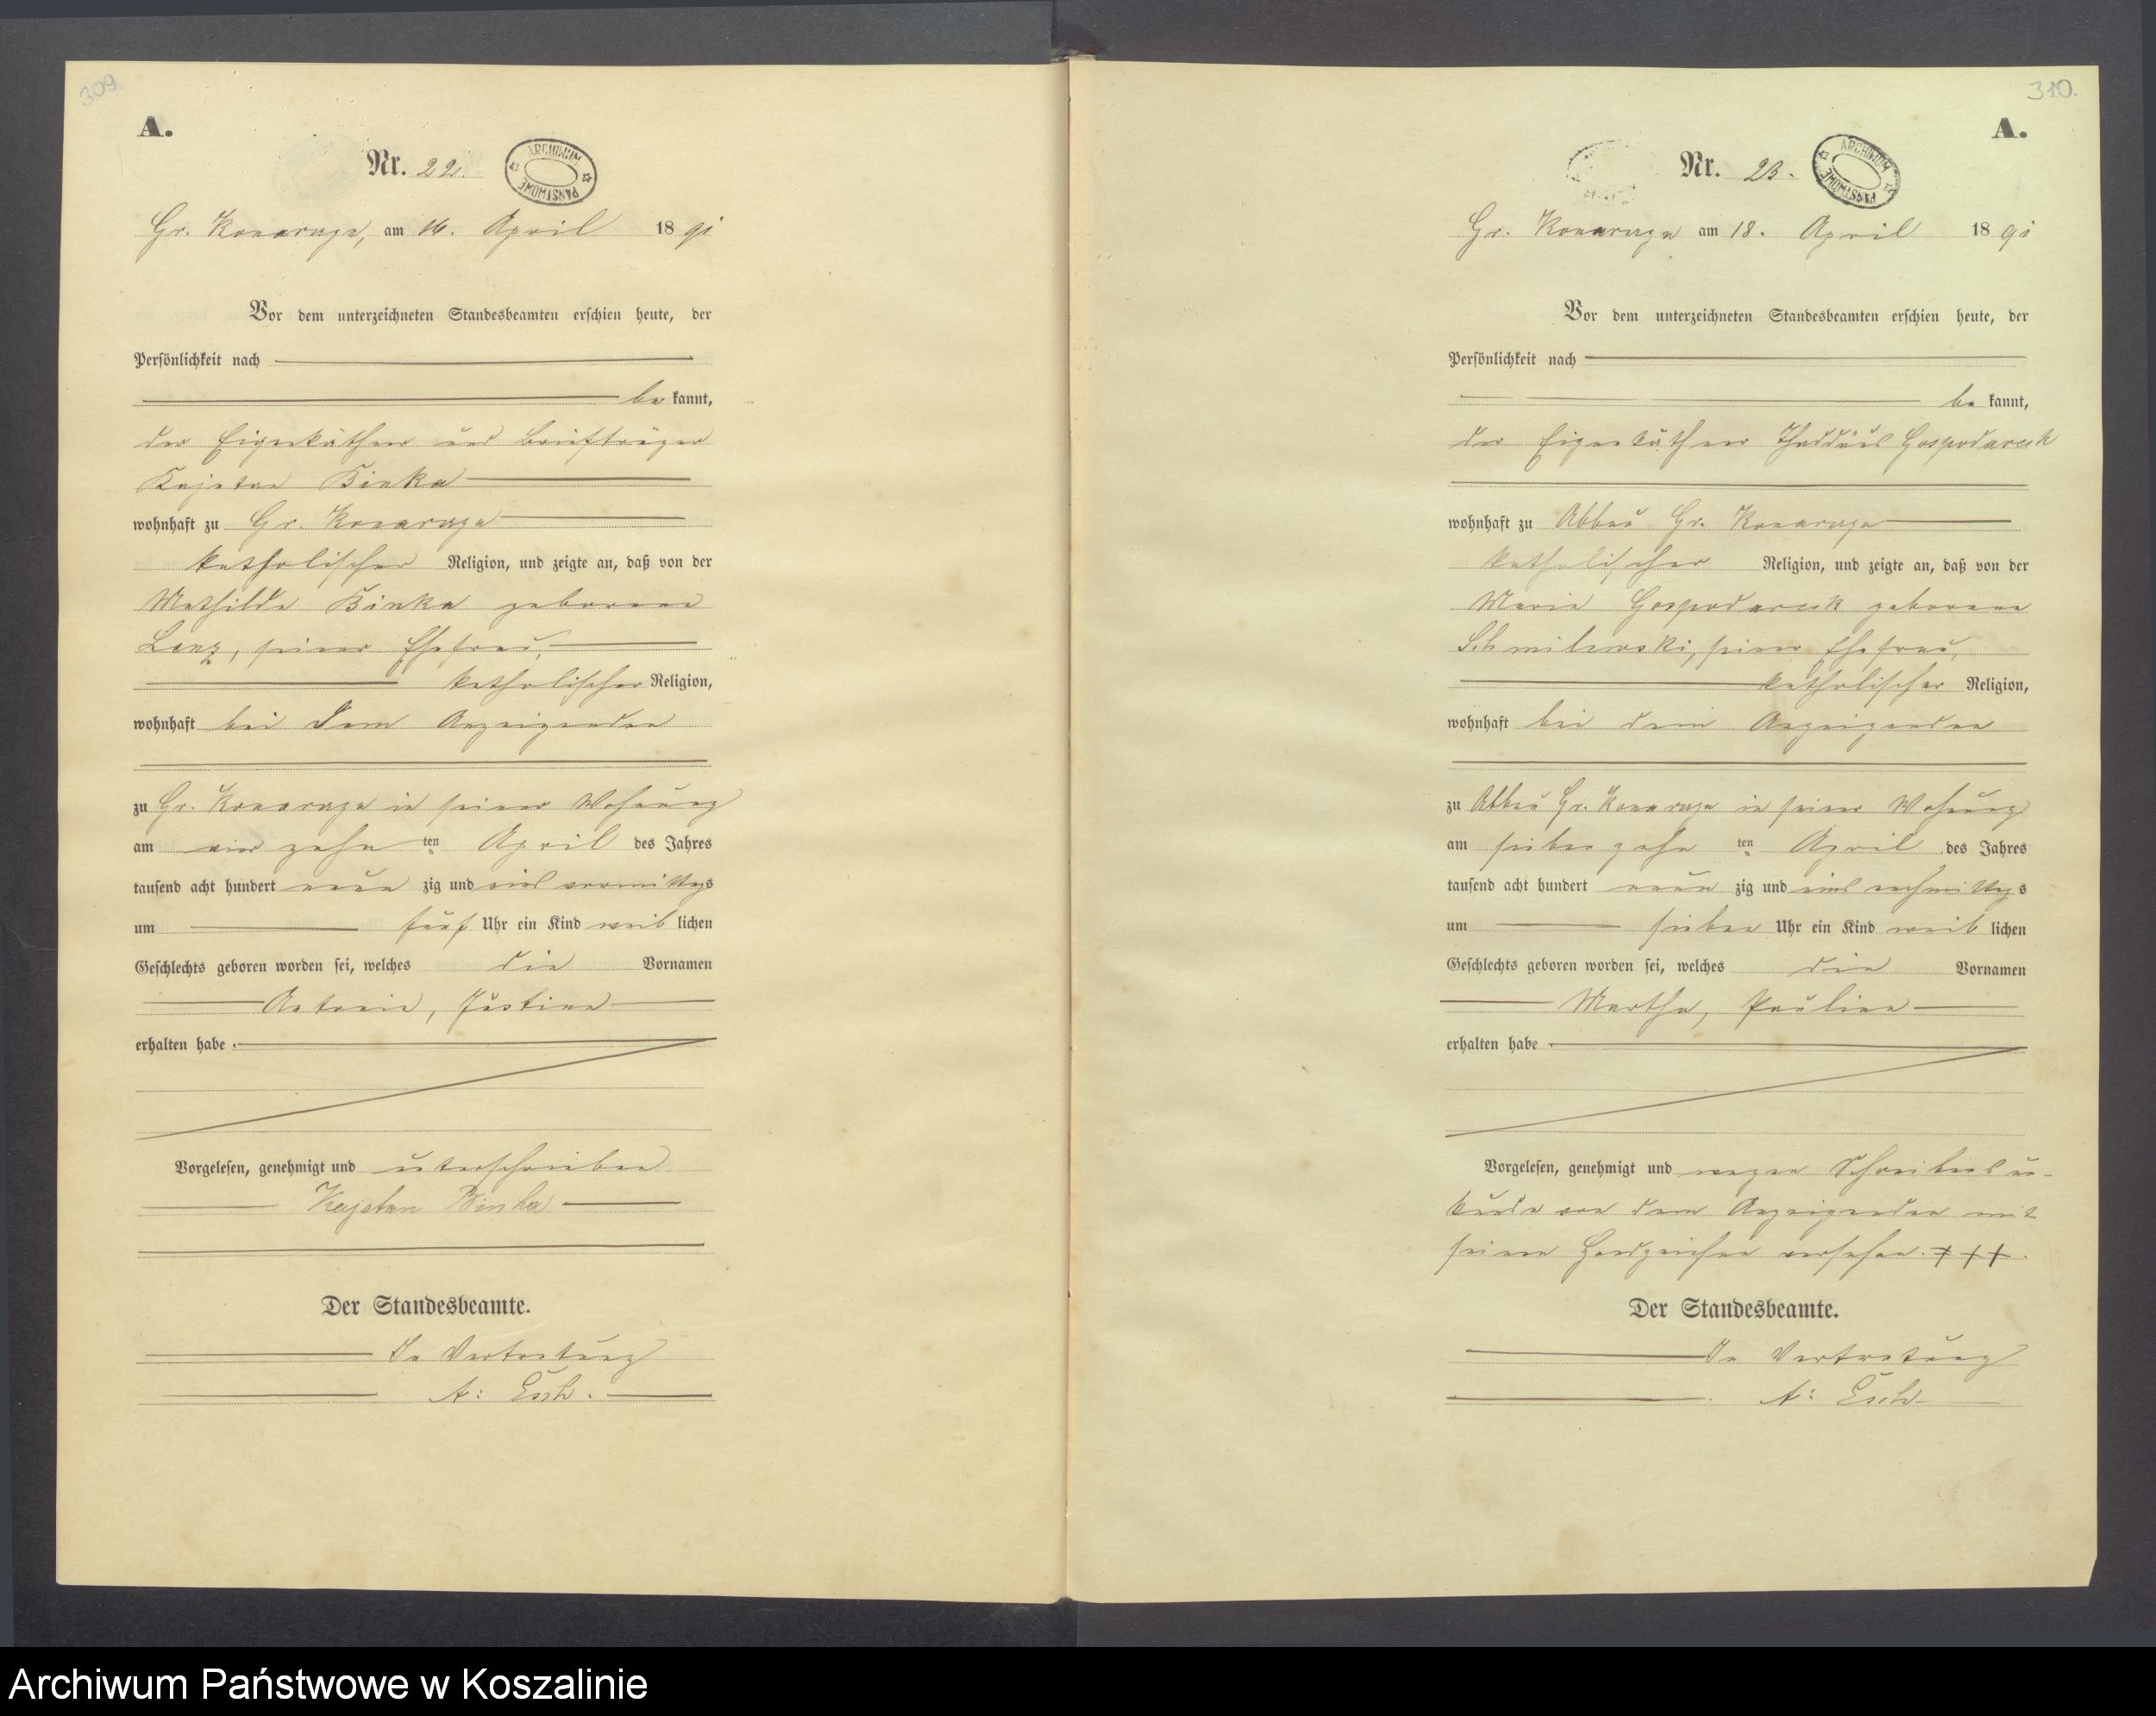 309.
A.
Nr. 22.
ARCHIWUM PAŃSTWOWE
Gr. Konarczyn, am 16. April 1891
Vor dem unterzeichneten Standesbeamten erschien heute, der
Persönlichkeit nach
be kannt,
der Eigenkäthner und Briefträger
Kajetan Binka
wohnhaft zu Gr. Konarczyn
katholischer Religion, und zeigte an, daß von der
Mathilde Binka geborene
Lonz, seiner Ehefrau,
katholischer Religion,
wohnhaft bei dem Anzeigenden
zu Gr. Konarczyn in seiner Wohnung
am vier zehn ten April des Jahres
tausend acht hundert neun zig und eins vormittags
um fünf Uhr ein Kind weib lichen
Geschlechts geboren worden sei, welches die Vornamen
Antonie, Justine
erhalten habe.
Vorgelesen, genehmigt und unterschrieben
Kajetan Binka
Der Standesbeamte.
In Vertretung
A: Esch.
310.
A.
Nr. 23.
ARCHIWUM PAŃSTWOWE
Gr. Konarczyn am 18. April 1891
Vor dem unterzeichneten Standesbeamten erschien heute, der
Persönlichkeit nach
be kannt,
der Eigenkäthner Thaddäus Gospodarek
wohnhaft zu Abbau Gr. Konarczyn
katholischer Religion, und zeigte an, daß von der
Marie Gospodarek geborene
Schmilewski, seiner Ehefrau,
katholischer Religion,
wohnhaft bei dem Anzeigenden
zu Abbau Gr. Konarczyn in seiner Wohnung
am sieben zehn ten April des Jahres
tausend acht hundert neun zig und eins nachmittags
um sieben Uhr ein Kind weib lichen
Geschlechts geboren worden sei, welches die Vornamen
Martha, Pauline
erhalten habe
Vorgelesen, genehmigt und wegen Schreibensun-
kunde von dem Anzeigenden mit
seinen Handzeichen versehen. +++.
Der Standesbeamte.
In Vertretung
A: Esch
Archiwum Państwowe w Koszalinie